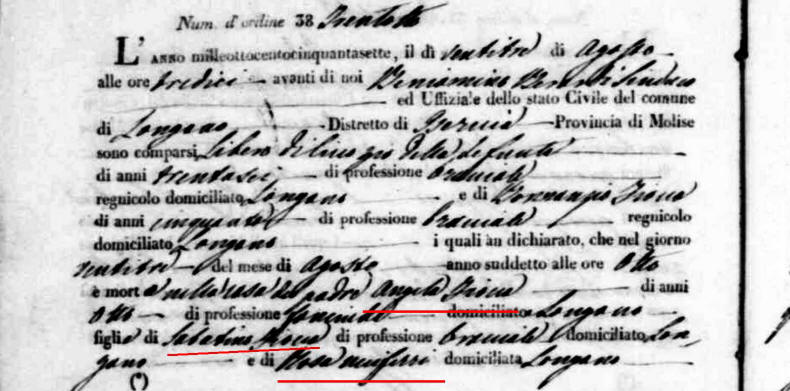 Num. d'ordine 38 Trentotto
L'ANNO milleottocentocinquantasette, il dì ventitre di Agosto
alle ore tredici avanti di noi Beniamino Sindaco
ed Uffiziale dello stato Civile del comune
di Longano Distretto di Isernia Provincia di Molise
sono comparsi Libero zio della defunta
di anni trentasei di professione bracciale
regnicolo domiciliato Longano e di
di anni cinquanta di professione bracciale regnicolo
domiciliato Longano i quali àn dichiarato, che nel giorno
ventitre del mese di Agosto anno suddetto alle ore Otto
è morta nella casa del padre Angela di anni
Otto di professione domiciliata Longano
figlia di Sabatino di professione bracciale domiciliato Lon
gano e di Rosa domiciliata Longano
(*)